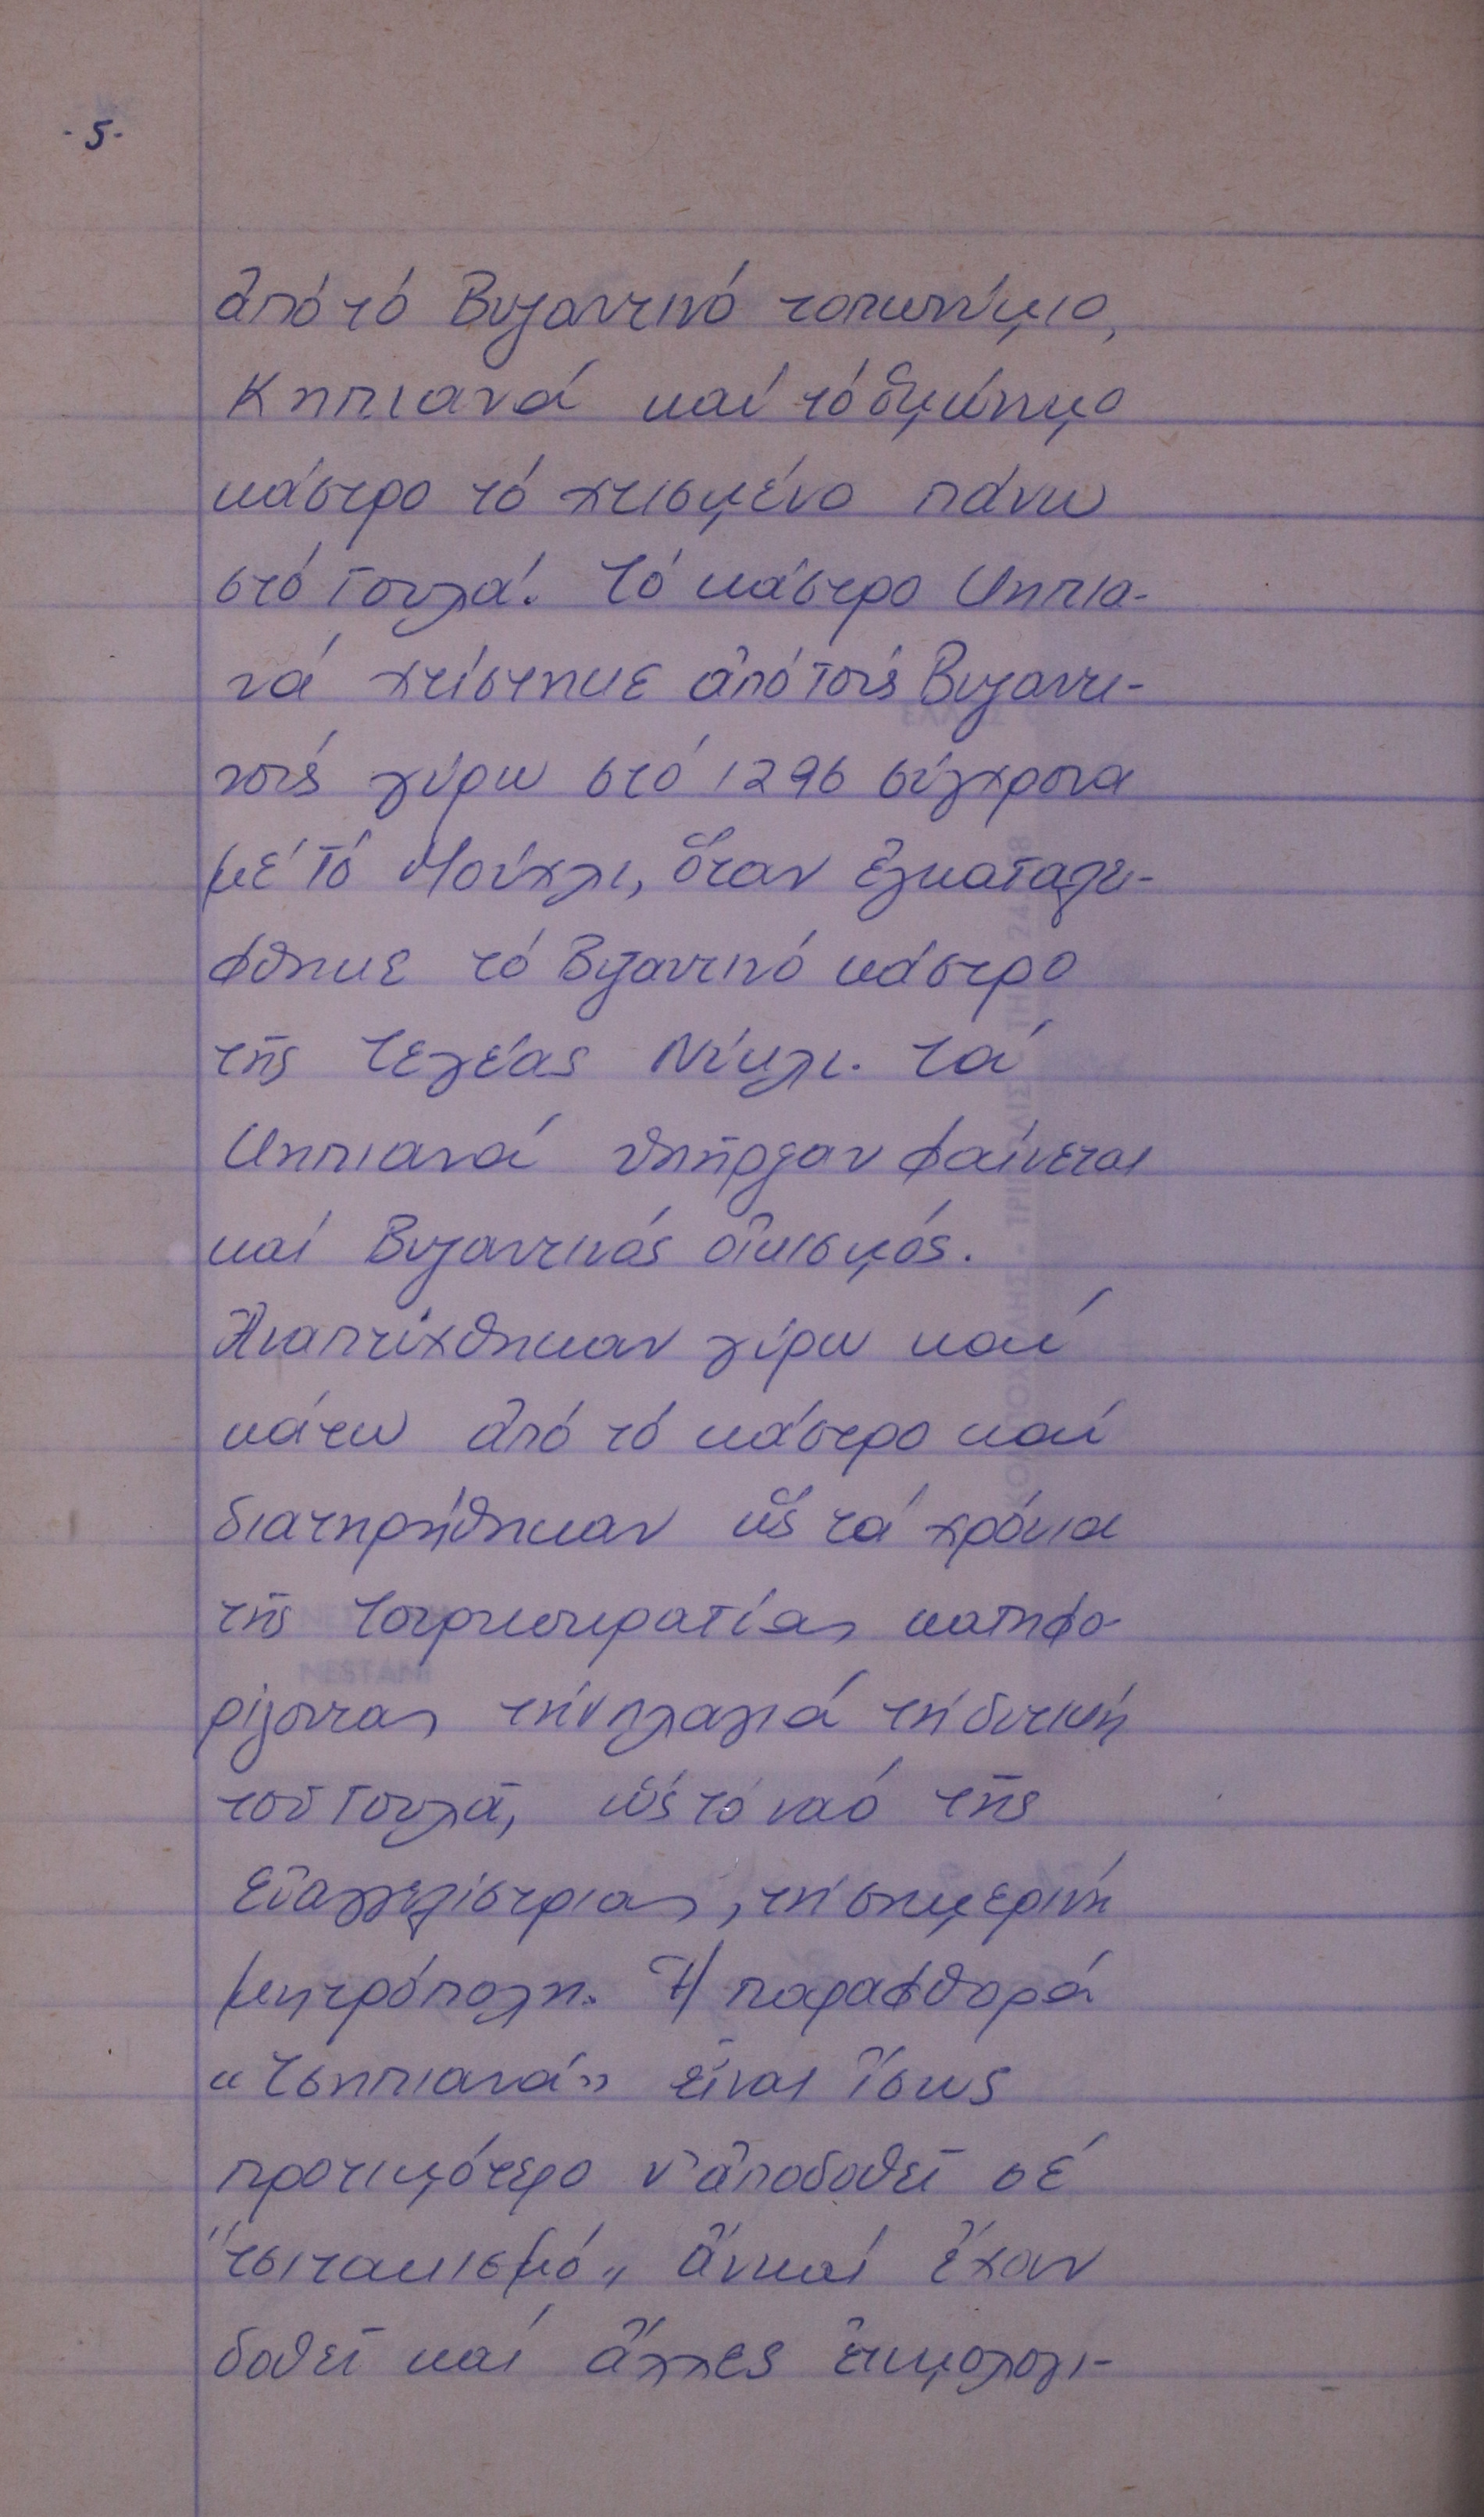 -5-
ἀπό τό Βυζαντινό τοπωνύμιο,
Κηπιανά καί τό ὁμώνυμο
κάστρο τό χτισμένο πάνω
στό Γουλά. Τό κάστρο Κηπια-
νά χτίστηκε ἀπό τούς Βυζαντι-
νούς γύρω στό 1296 σύγχρονα
μέ τό Μούχλι, ὅταν ἐγκαταλεί-
φθηκε τό Βυζαντινό κάστρο
τῆς Τεγέας Νίκλι. Τά
Κηπιανά ὑπῆρξαν φαίνεται
καί Βυζαντινός οἰκισμός.
Ἀναπτύχθηκαν γύρω καί
κάτω ἀπό τό κάστρο καί
διατηρήθηκαν ὥς τά χρόνια
τῆς Τουρκοκρατίας κατηφο-
ρίζοντας τήν πλαγιά τή δυτική
τοῦ Γουλᾶ, ὥς τό ναό τῆς
Εὐαγγελίστριας, τή σημερινή
μητρόπολη. Ἡ παραφθορά
«Τσηπιανά» εἶναι ἴσως
προτιμότερο ν' ἀποδοθεῖ σέ
"τσιτακισμό" ἄν καί ἔχουν
δοθεῖ καί ἄλλες ἐτυμολογι-
NESTANI